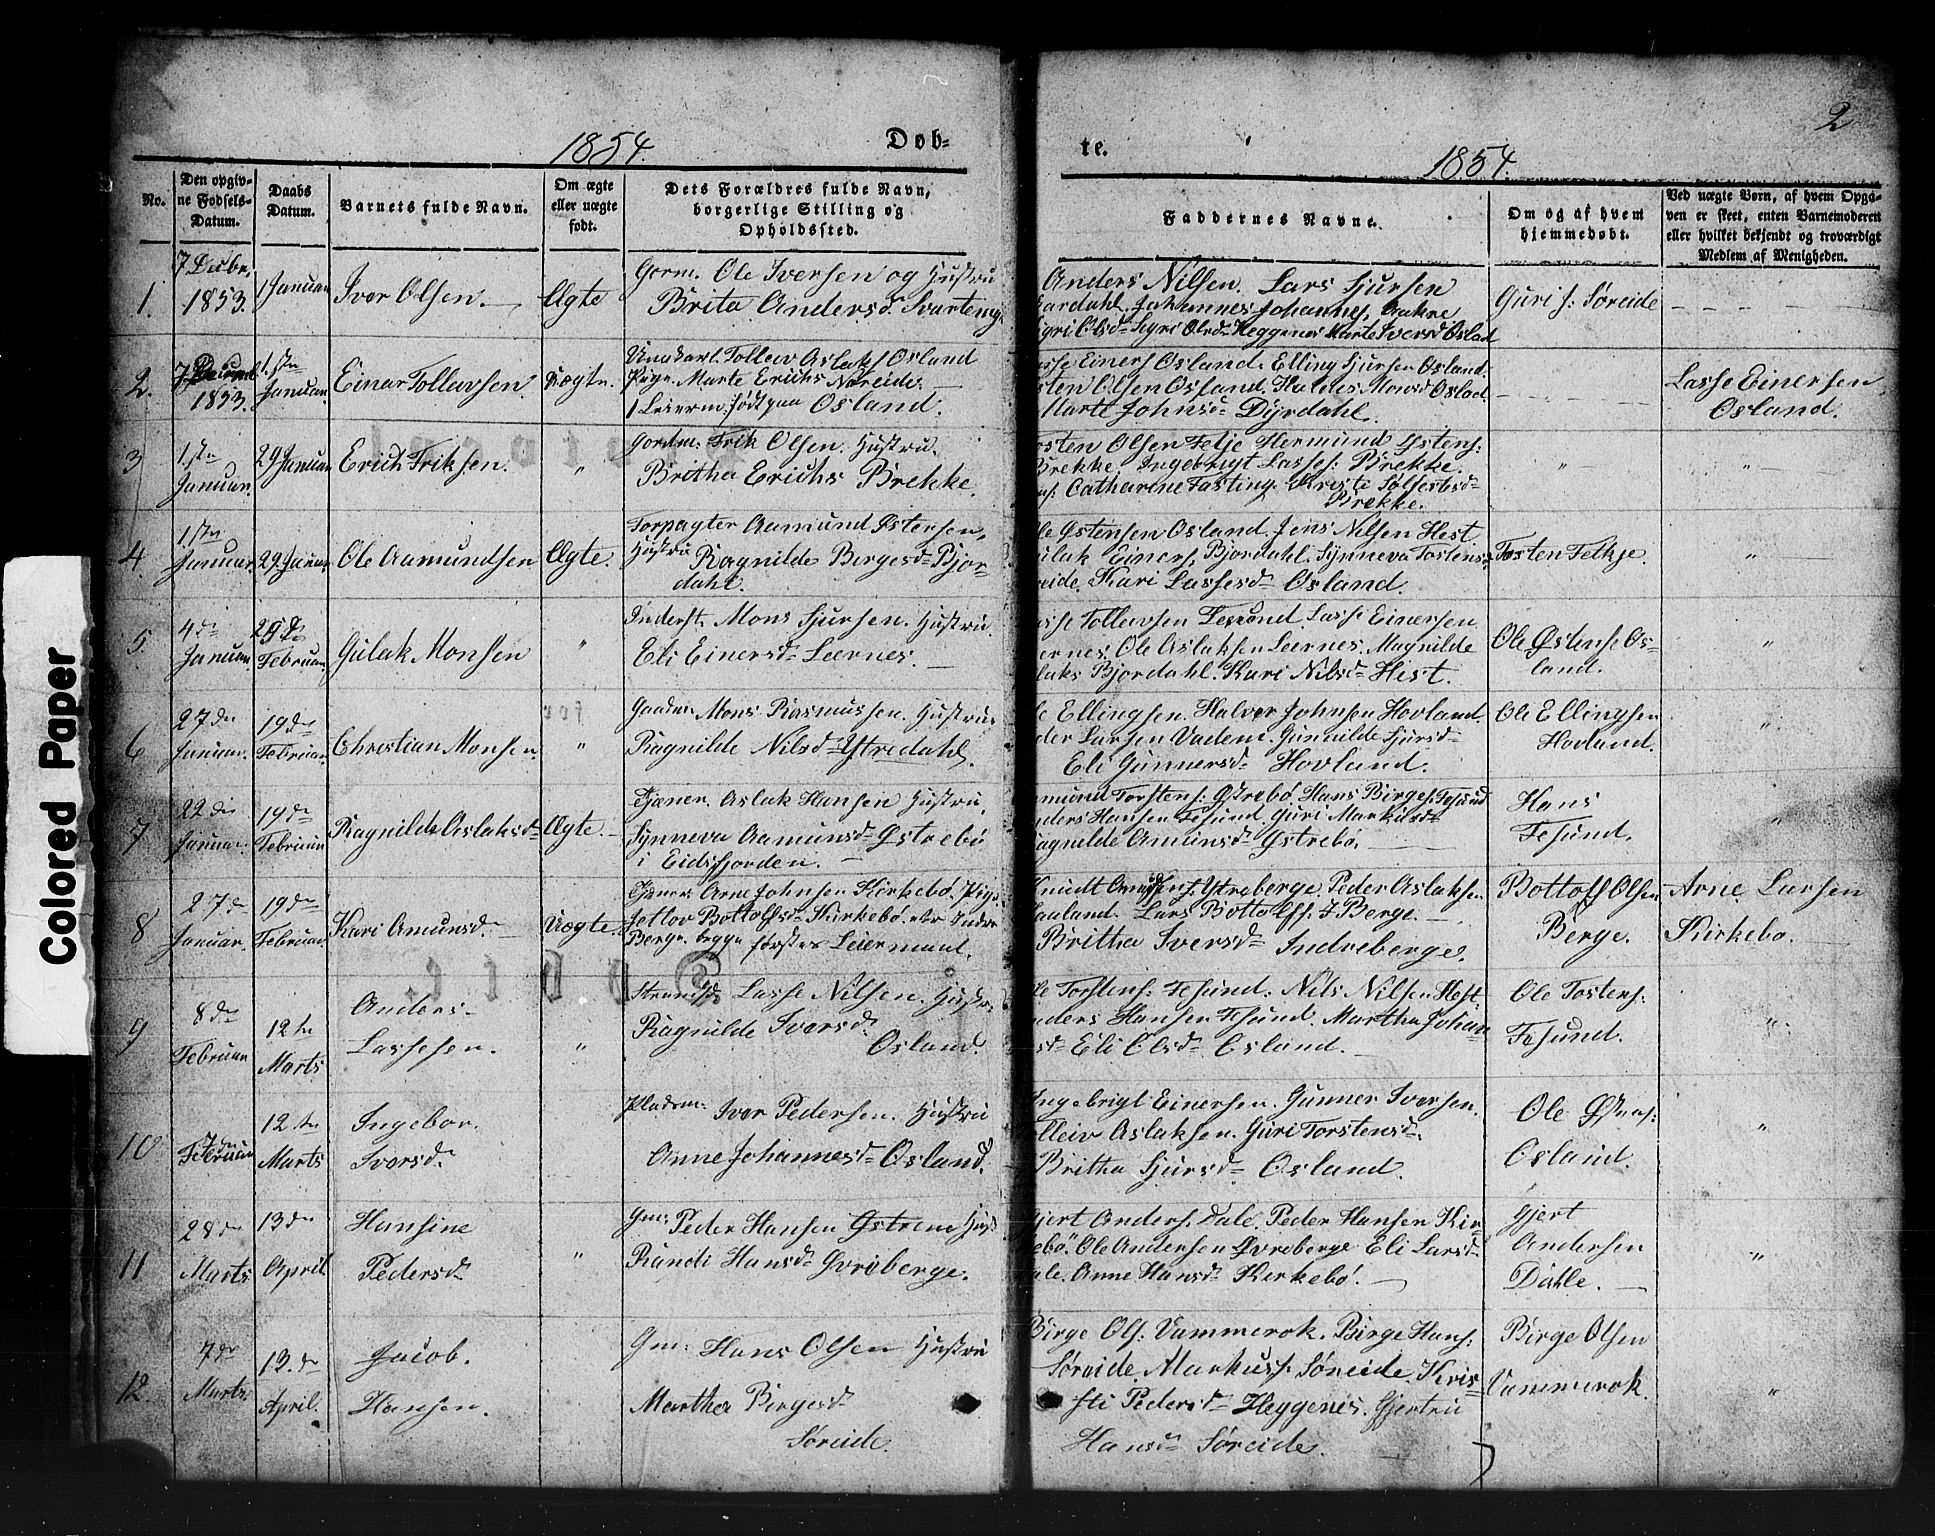 2
1854.
Døb-
te.
1854.
No.
Den opgiv-
ne Fødsels-
Datum.
Daabs
Datum.
Barnets fulde Navn.
Om ægte
eller uægte
født.
Dets Forældres fulde Navn,
borgerlige Stilling og
Opholdssted.
Faddernes Navne.
Om og af hvem
hjemmedøbt.
Ved uægte Børn, af hvem Opga-
ven er skeet, enten Barnemoderen
eller hvilket bekjendt og troværdigt
Medlem af Menigheden.
1.
7 Decbr.
1853.
1 Januar
Iver Olsen.
Ægte
Gorm. Ole Iversen og Hustru
Brita Andersd. Svartemy
Anders Nilsen. Lars Sjursen
Johannes Johannes. Aakre
Syri Olsd. Heggenes Marte Iversd Osland
Guri s: Søreide
2.
1853.
1.ste
Januar.
Einar Tollevsen
Uægte.
Ungkarl Tolleiv Aslaks Osland
Pige. Marte Erichs Nøreide.
1 Leierm. født paa Osland.
Einers Osland. Elling Sjursen Osland.
Olsen Osland. Monsd Osland
Marte Johnsd. Dyrdahl.
Lasse Einersen
Osland.
3
1.ste
Januar.
29 Januar
Erich Eriksen.
"
Gordm. Erik Olsen. Hustru.
Britha Erichs Brekke.
Olsen Felje Hermund Østens:
Brekke. Ingebrigt Lasses: Brekke.
Catharine Fasting. Kristi Solfestsd.
Brekke.
"
"
4.
1.ste
Januar.
29. Januar.
Ole Aamundsen
Ægte.
Forpagter Aamund Østensen,
Hustru Ragnilde Bergesd. Bjor-
dahl.
Østensen Osland. Jens Nilsen Hest
Einers. Bjordahl. Synneva Tostens
Kari Lassesd. Osland.
Tosten Felkje.
"
5.
4de
Januar
Februar.
Gulak Monsen
"
Inderst. Mons Sjursen. Hustru.
Eli Einersd. Leernes.
Tollevsen Lasse Einersen
Ole Aslaksen Leernes. Magnilde
Bjordahl. Kari Nilsd. Hest.
Ole Østens Os-
land.
"
6
27de
Januar.
19de
Februar.
Christian Monsen.
"
Mons Rasmussen. Hustru.
Ragnilde Nilsd. Ytredahl.
Ellingsen. Halvor Johnsen Hovland.
Larsen Vadem. Gunnilde Sjursd.
Eli Gunnersd. Hovland.
Ole Ellingsen
Hovland.
"
7
22de
Januar.
19de
Februar
Ragnilde Aslaksd.
Ægte.
Tjener. Aslak Hansen Hustru.
Synneva Aamunsd. Østrebø
i Eidsfjorden.
Torstens: Østrebø. Hans Birges. Fesund
Hansen Fesund. Guri Markusd.
Ragnilde Amunsd. Østrebø.
Hans
Fesund.
"
8
27de
Januar.
19de
Februar.
Kari Amunsd.
Uægte.
Tjener. Arne Johnsen Kirkebø. Pige.
Bottolfsd. Kirkebø
Berge. begge førstes Leiermaal.
Knudt Ytreberge. Peder Aslaksen
Lars Bottolfs. I Berge.
Britha Iversd. Indreberge.
Bottolf Olsen
Berge.
Arne Larsen
Kirkebø.
9
8de
Februar
12te
Marts
Anders
Lassesen.
"
Lasse Nilsen. Hustr.
Ragnilde Iversd.
Osland.
Torstens: Fesund. Nils Nilsen Hest.
Anders Hansen Fesund. Martha Johan
Eli Olsd. Osland.
Ole Tostens:
Fesund.
"
10
7de
Februar
12te
Marts
Ingebor.
Iversd.
Pladsm. Iver Pedersen. Hustru
Anne Johannesd. Osland.
Ingebrigt Einersen. Gunner Iversen.
Tolleiv Aslaksen. Guri Torstensd.
Britha Sjursd. Osland.
Ole Østens:
Osland.
"
11
28de
Marts.
13de
April
Hansine
Pedersd.
"
Gm: Peder Hansen Østrem Hust
Randi Hansd. Øvreberge.
Gjert Anders. Dale. Peder Hansen Kir-
kebø. Ole Andersen Øvreberge Eli Larsd.
Dale. Anne Hansd. Kirkebø.
Gjert
Andersen
Dahle.
"
12.
7de
Marts.
13.de
April.
Jacob.
Hansen.
Gm: Hans Olsen Hustru
Marthe Birgesd.
Søreide.
Birge Ols. Vammerok. Birge Hans:
Søreide. Markus s. Søreide. Kris-
sti Pedersd. Heggenes. Gjertru
Hansd. Søreide.
Birge Olsen
Vammerok.
"
Colored Paper